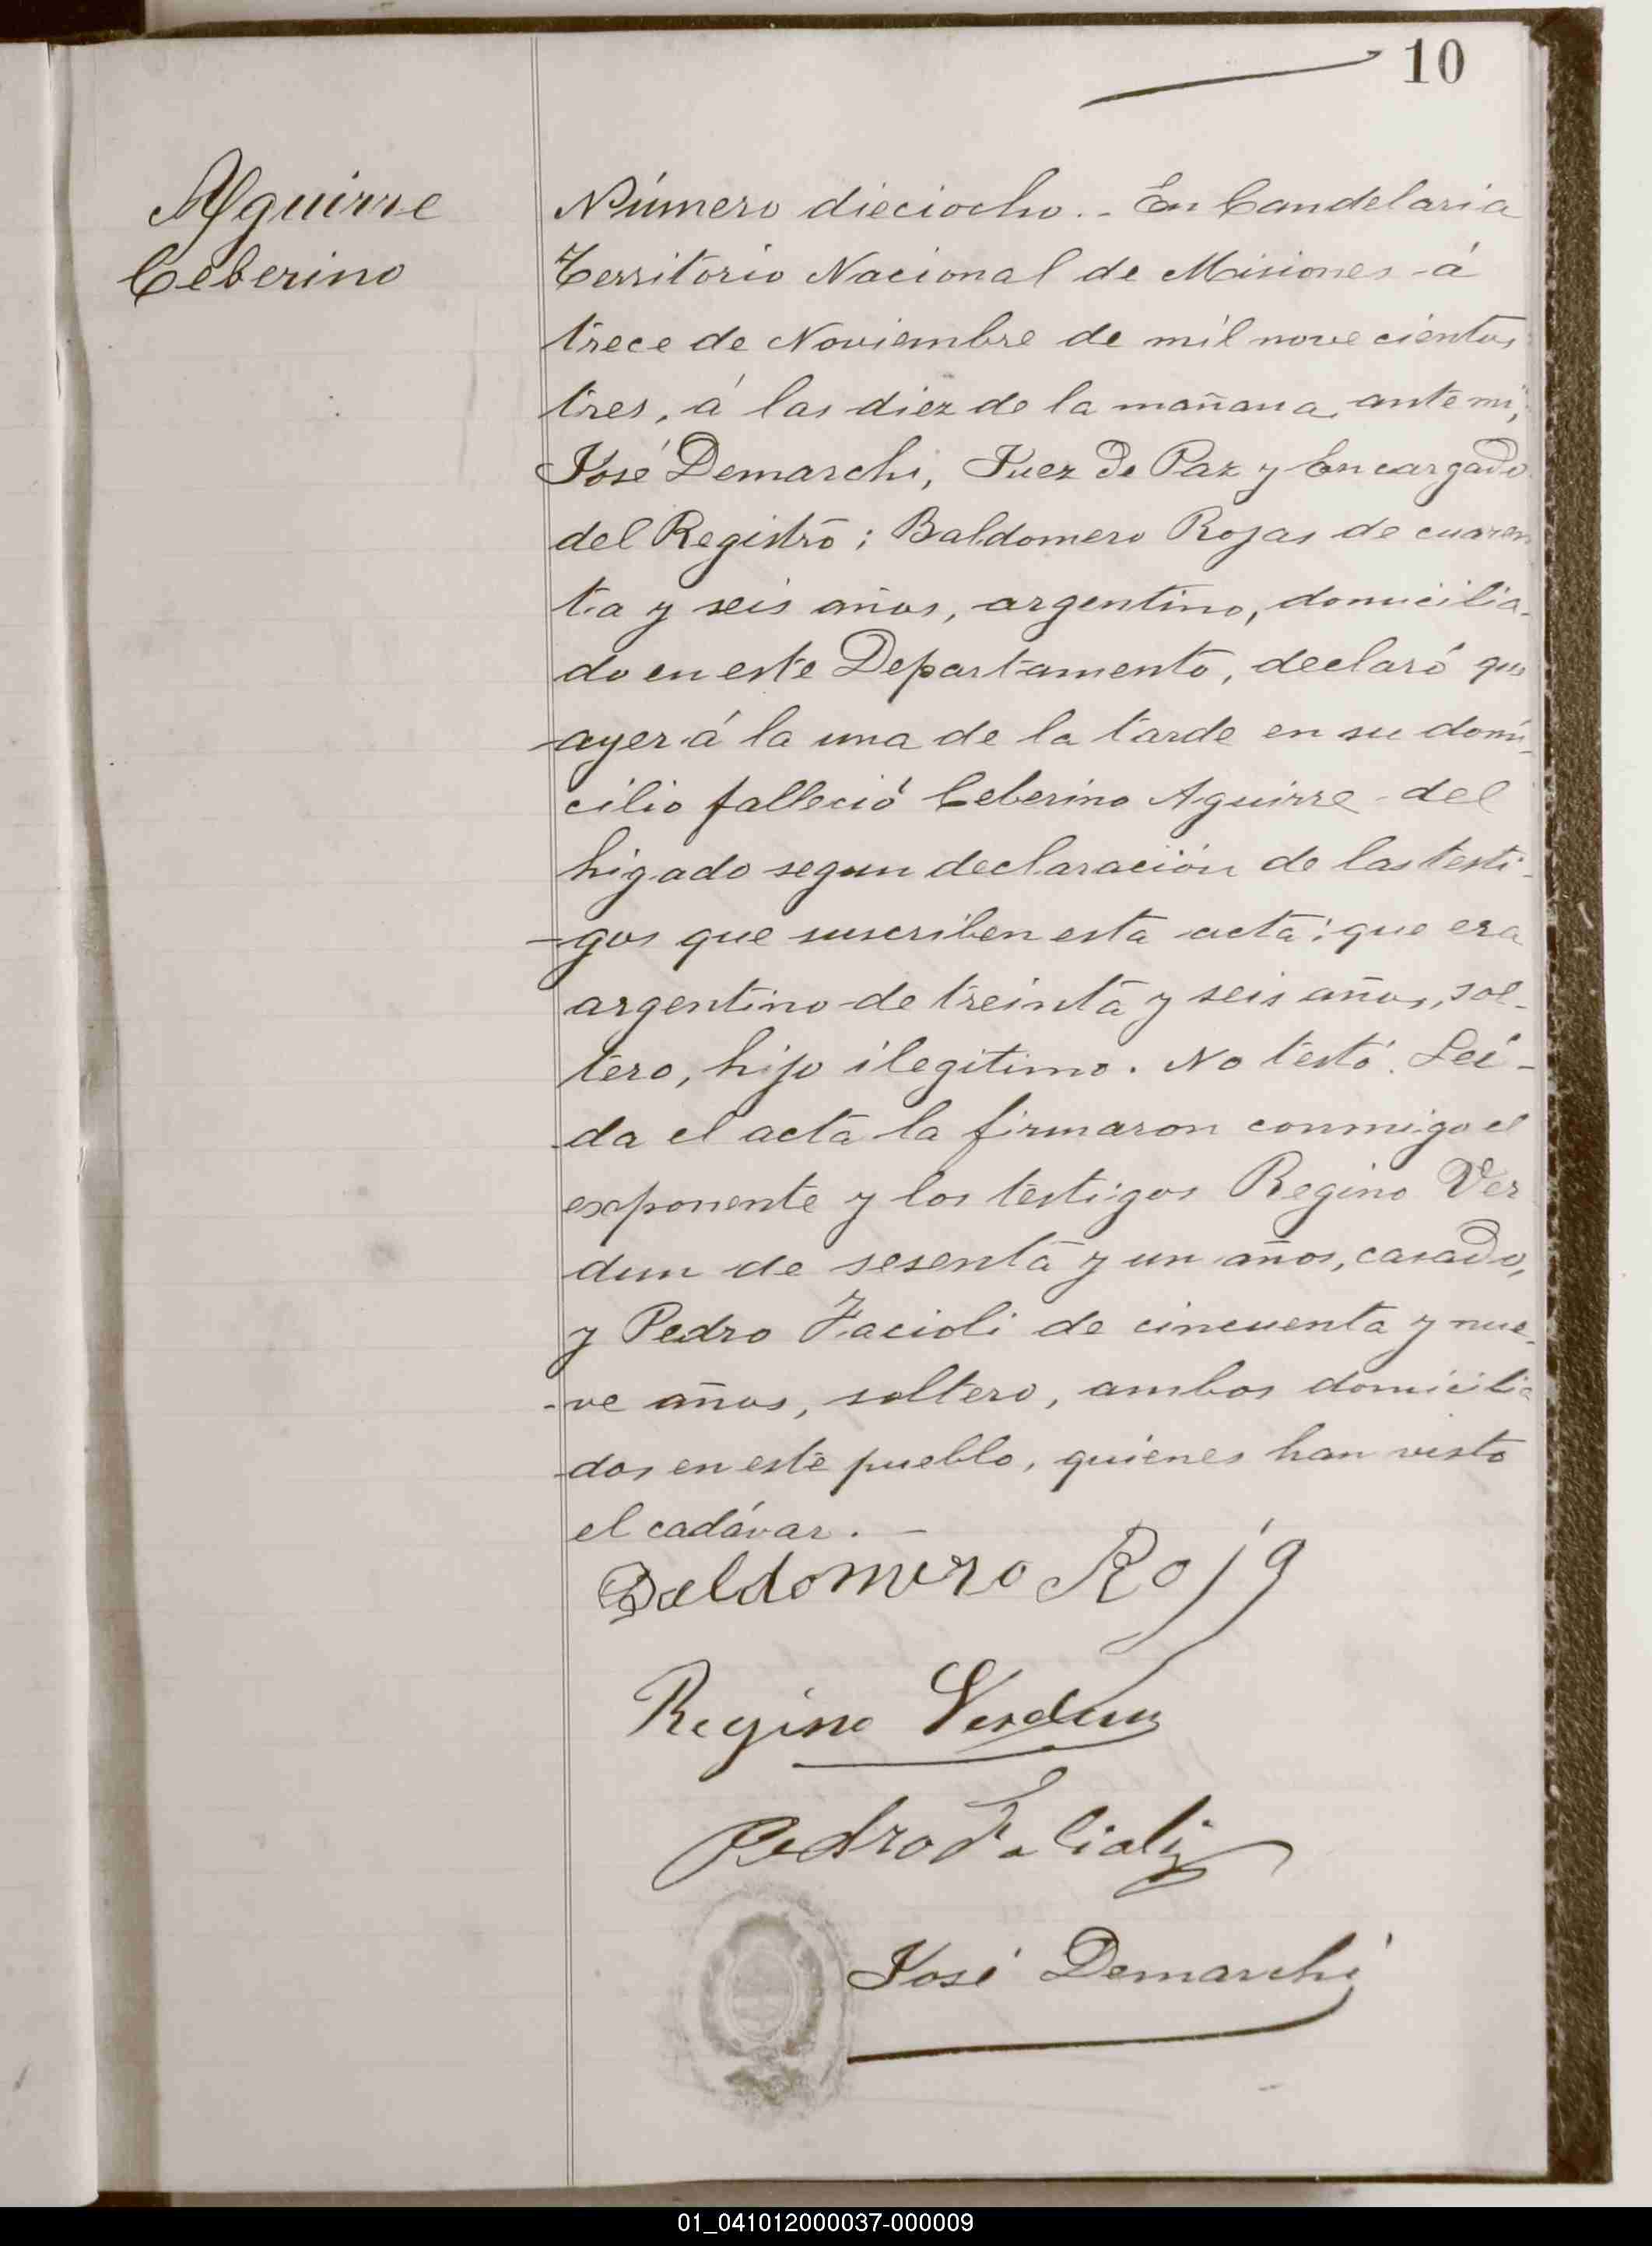 10
Aguirre
Ceberino
Número dieciocho.- En Candelaria
Territorio Nacional de Misiones á
trece de Noviembre de mil nove cientos
tres, á las diez de la mañana, ante mi,
José Demarchi, Juez de Paz y Encargado
del Registro; Baldomero Rojas de cuaren
ta y seis años, argentino, domicilia-
do en este Departamento, declaró que
ayer á la una de la tarde en su domi-
cilio falleció Ceberino Aguirre del
higado segun declaración de los testi-
-gos que suscriben esta acta; que era
argentino de treinta y seis años, sol-
tero, hijo ilegitimo. No testó. Lei-
da el acta la firmaron conmigo el
exponente y los testigos Regino Ver
dun de sesenta y un años, casado,
y Pedro Facioli de cincuenta y nue-
-ve años, soltero, ambos domicilia
dos en este pueblo, quienes han visto
el cadávar. -
Baldomero Roja
Regino Verdun
Pedro
José Demarchi
01_041012000037-000009